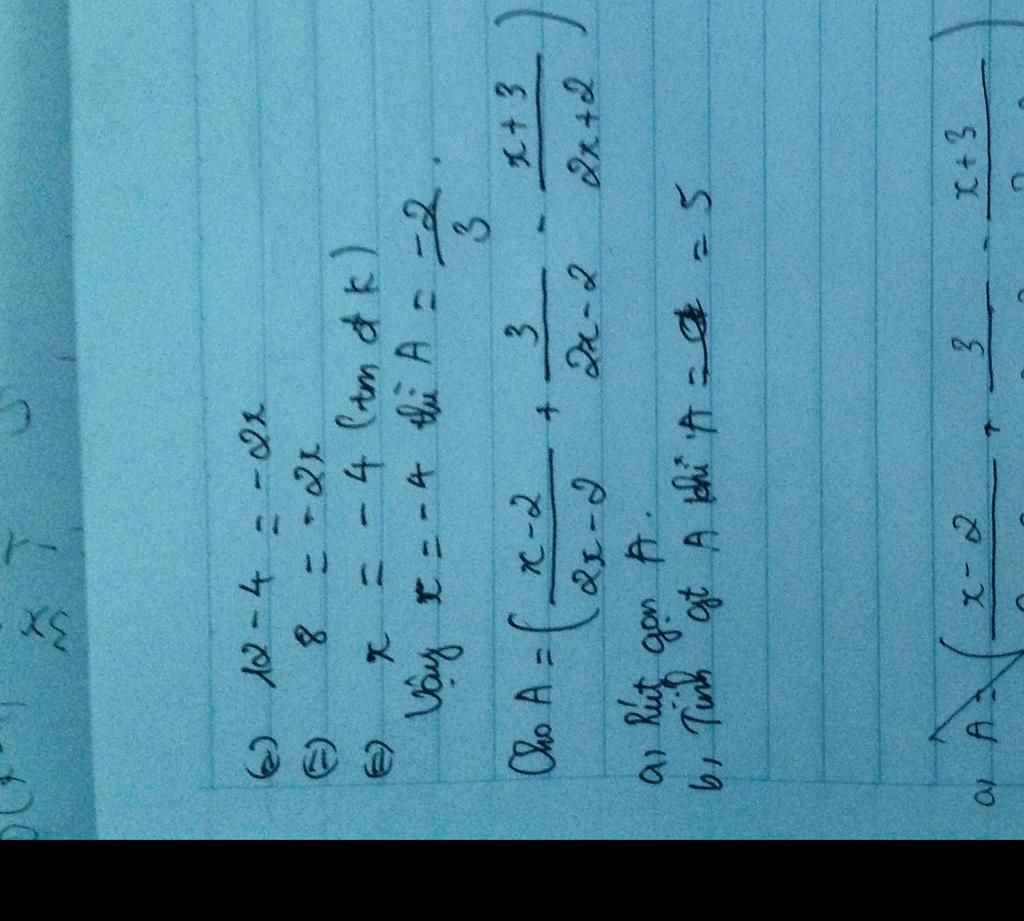 (=) 12 - 4 = -2x
(=) 8 = -2x
(=) x = -4 (tm đk)
Vậy x = -4 thì A = \frac{-2}{3}.
Cho A = ( \frac{x-2}{2x-2} + \frac{3}{2x-2} - \frac{x+3}{2x+2} )
a, Rút gọn A.
b, Tính gt A khi A = = 5
a, A = ( \frac{x-2}{} + \frac{3}{} - \frac{x+3}{} )